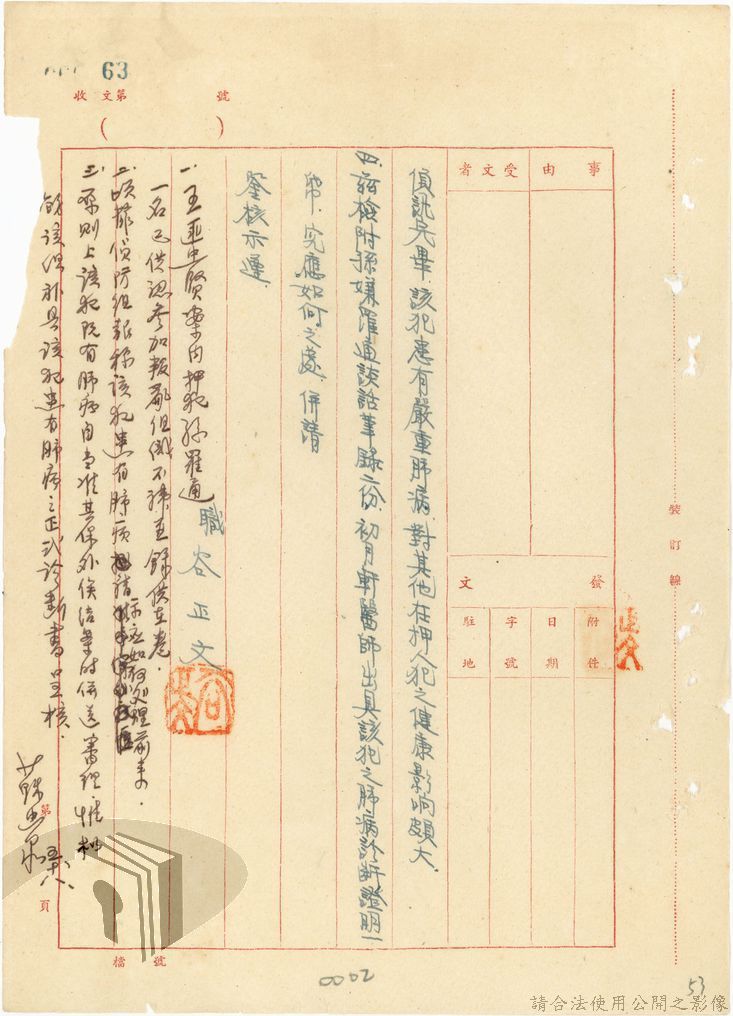 63
收文第 號
( )
事由
受文者
發文
附件
日期
字號
駐地
偵訊完畢,該犯患有嚴重肺病,對其他在押人犯之健康影响頗大.
四.茲檢附孫嫌羅通談話筆錄二份.初月軒醫師出具該犯之肺病診斷證明一
帋.究應如何之處.併請
鑒核示遵.
職 谷正文
一.王亞賢案內押犯孫羅通
一名已供認參加叛亂但俄不諱直錄供在卷.
二.頃據偵防組報稱該犯患有肺病 請示應如何處理前來.
三.原則上該犯既有肺病自當准其保外俟結案時併送審理.惟
飭該組補具該犯患有肺病之正式診斷書呈核.
第 頁
檔 號
裝訂線
0002
53
請合法使用公開之影像